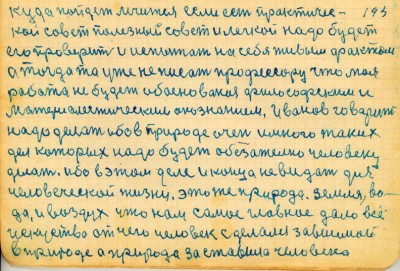 куда пойдет лечится если ест практичес- 195
кой совет полезный совет и легкой надо будет
его проверит и испытат на себя живым фрактом
а тогда та уже не писат профессору что моя
работа не будет обоснованая философским и
материалестическим опознанием, Иванов говарит
надо делат ибо в природе очен и много таких
дел которых надо будет обезателно человеку
делат. ибо в этом деле и конца невидат для
человеческой жизни, это же природа. земля, во-
да, и воздух что нам самое главное дало всё
искуство от чего человек сделаля зависимой
в природе а природа заставила человека